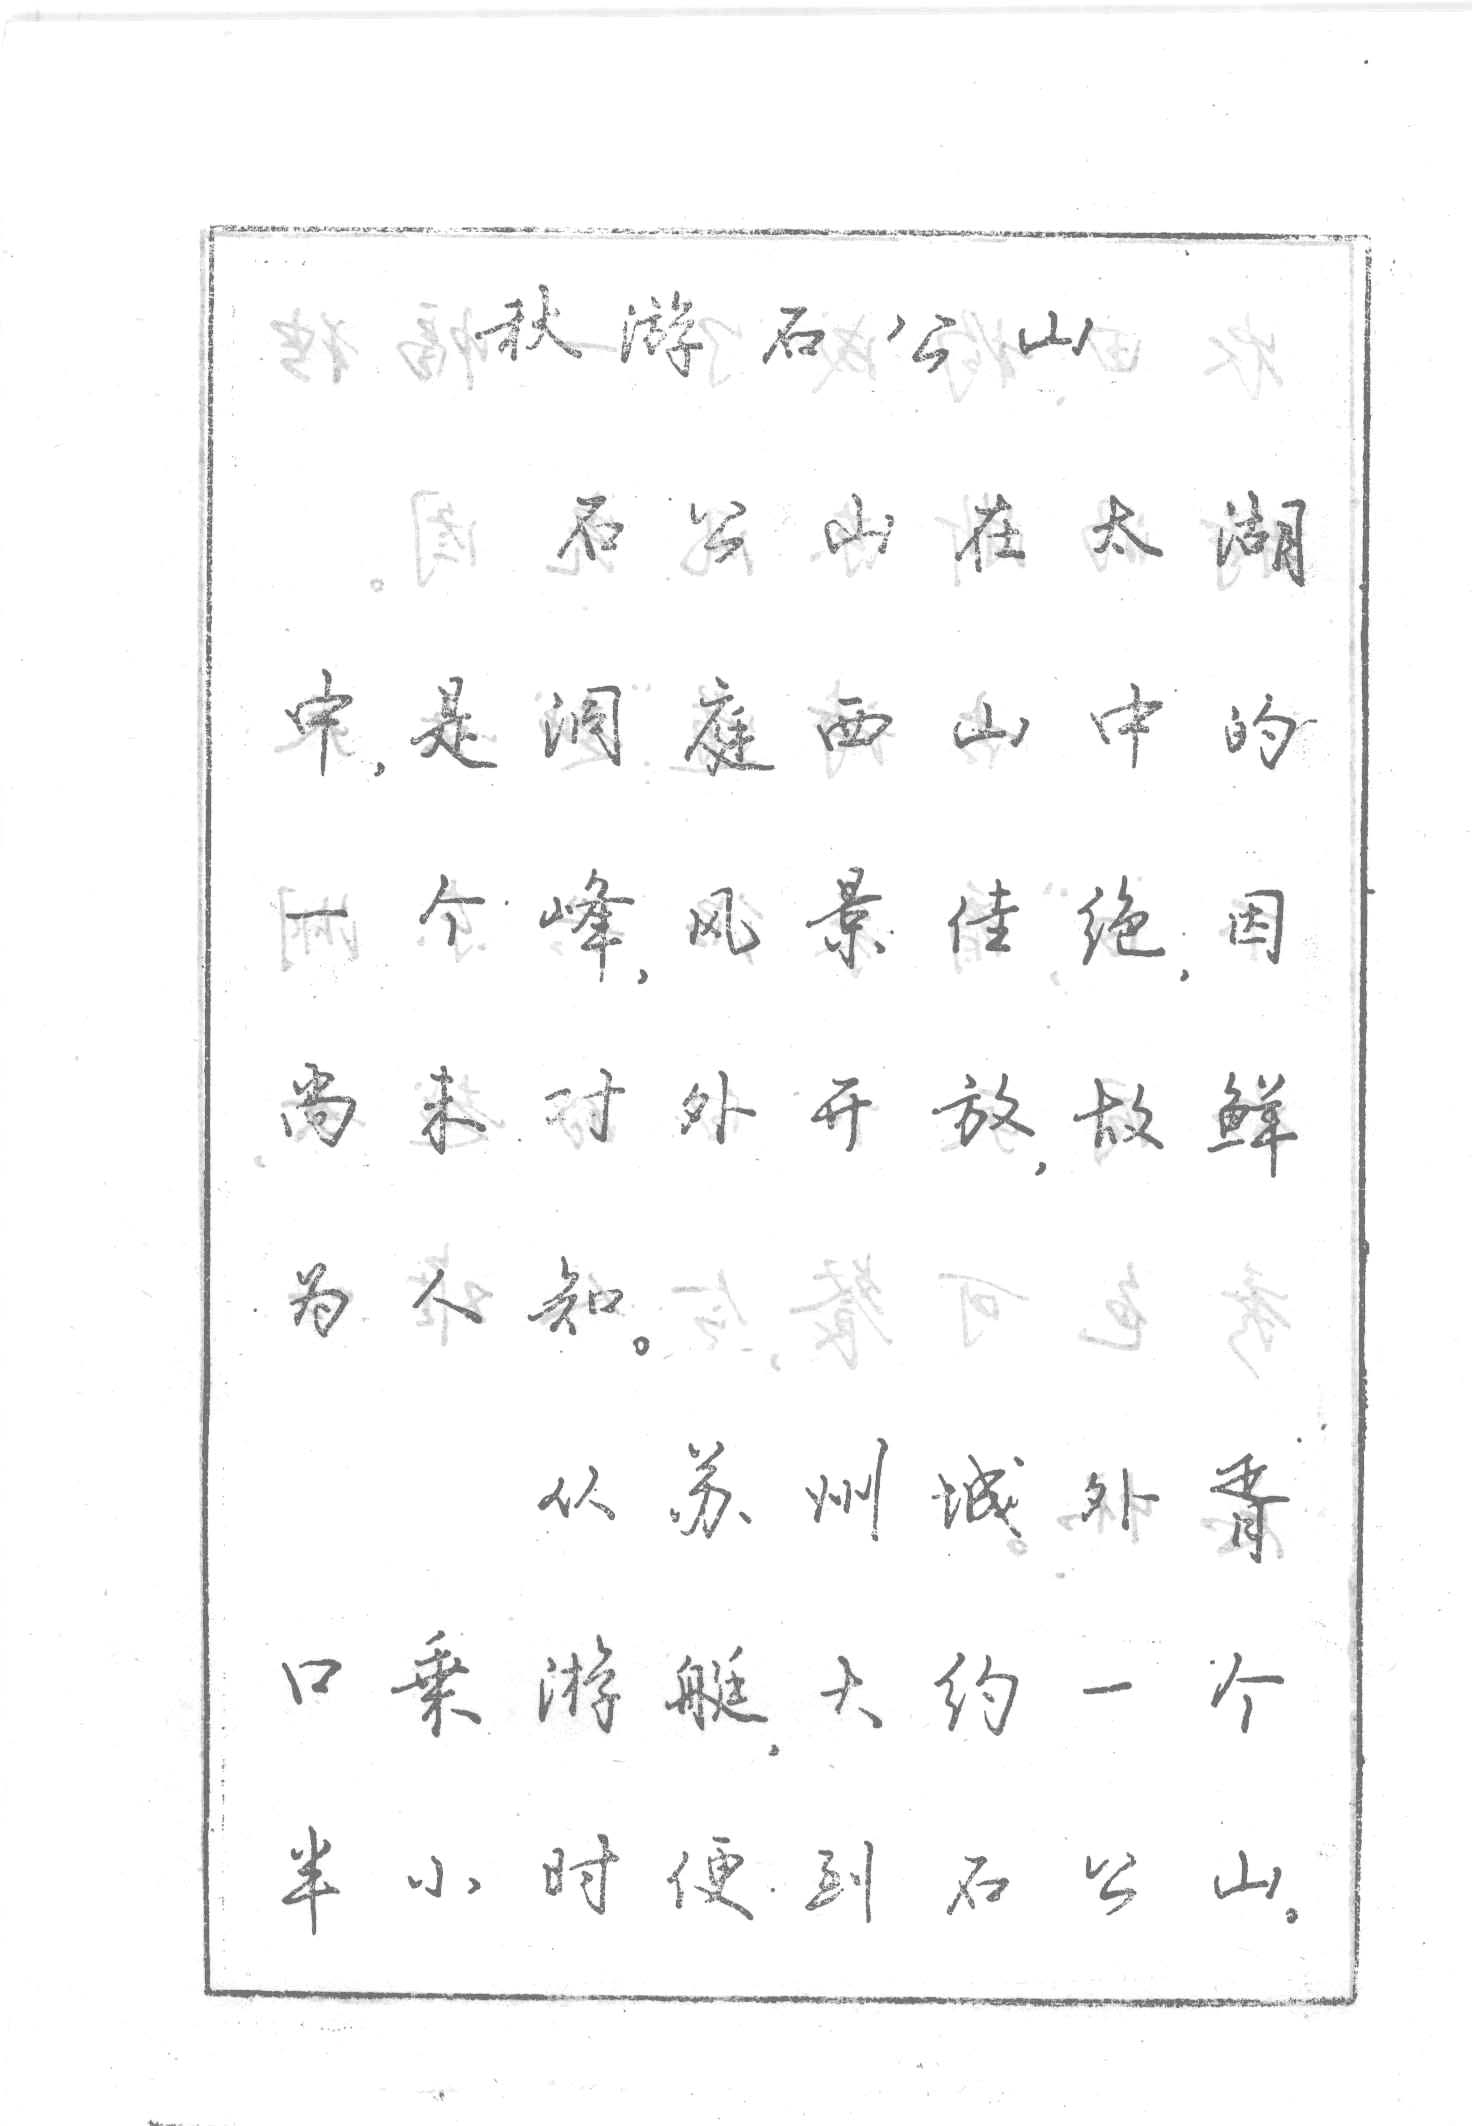 秋游石公山
石公山在太湖
中,是洞庭西山中的
一个峰,风景佳绝,因
尚未对外开放,故鲜
为人知。
从苏州城外胥
口乘游艇,大约一个
半小时便到石公山。